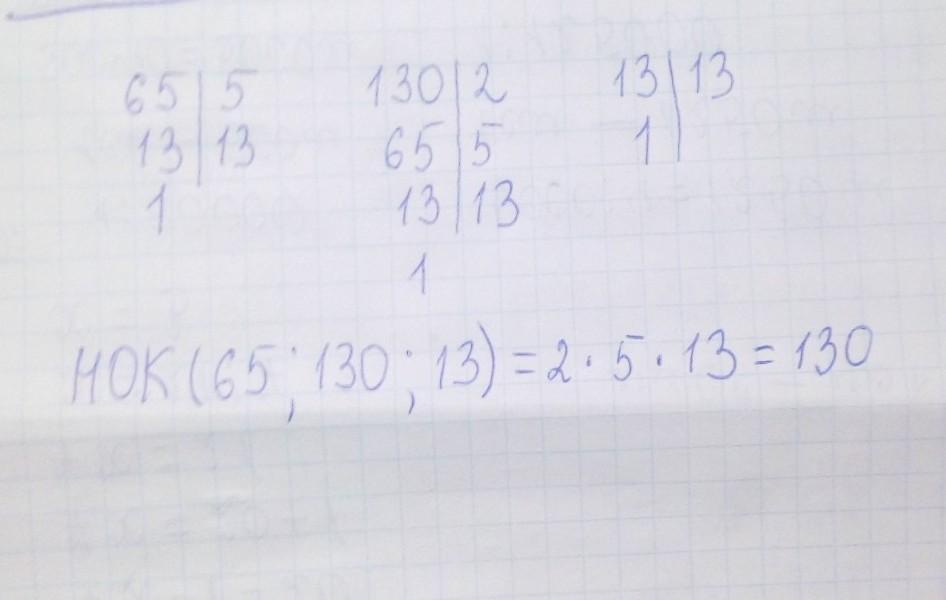 65 | 5 130 | 2 13 | 13
13 | 13 65 | 5 1 |
1 13 | 13
1
НОК (65; 130; 13) = 2 · 5 · 13 = 130